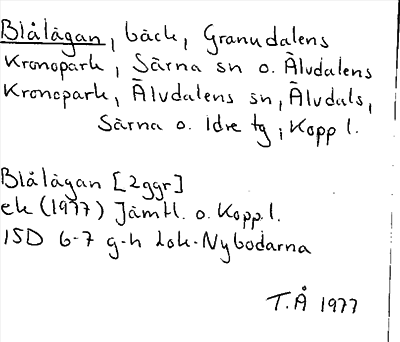 Blålågan, bäck, Granudalens
Kronopark, Särna sn o. Älvdalens
Kronopark, Älvdalens sn, Älvdals,
Särna o. Idre tg, Kopp l.
Blålågan [2ggr]
ek (1977) Jämtl. o. Kopp.l.
15D 6-7 g-h Lok. Nybodarna
T.Å 1977